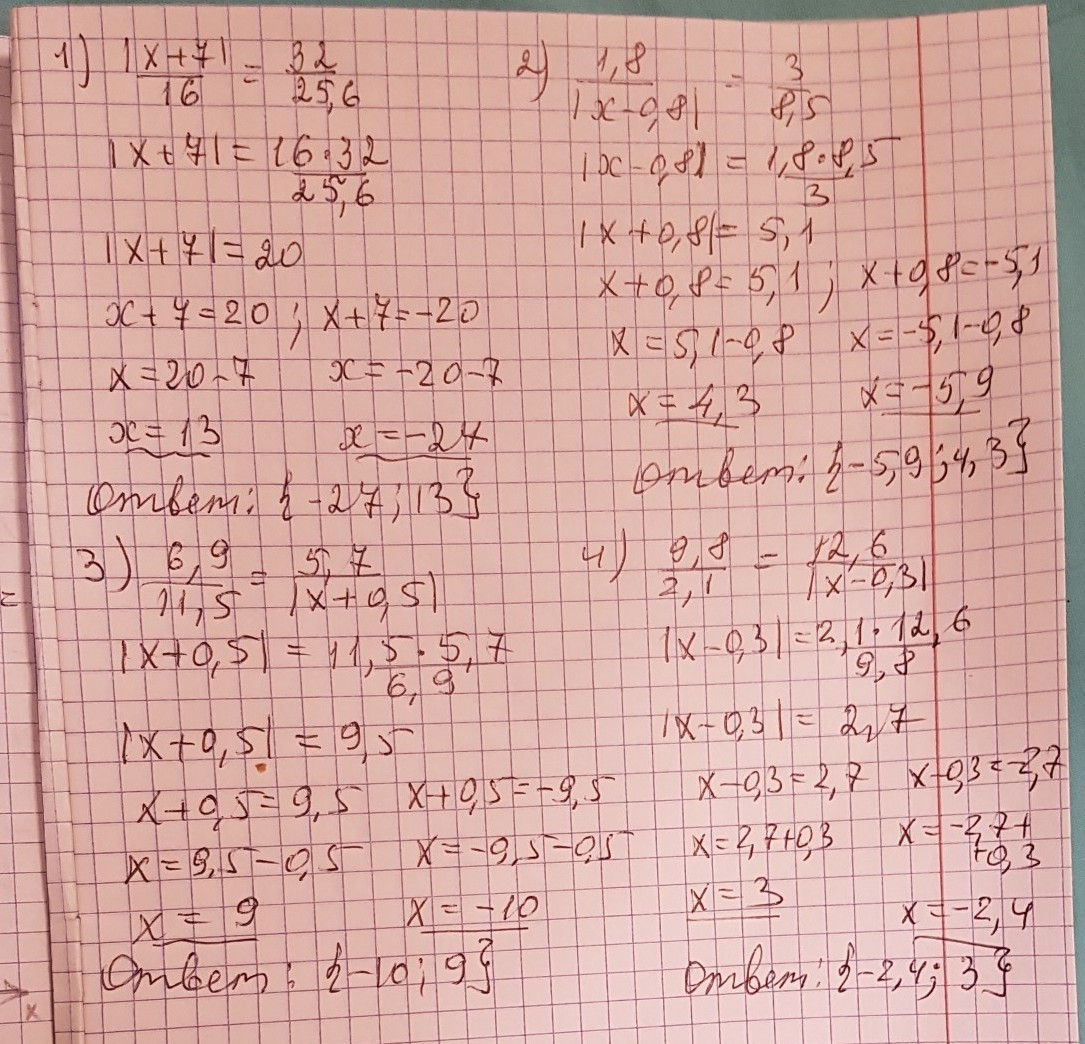 1) |x+7|/16 = 32/25,6
|x+7| = 16·32/25,6
|x+7| = 20
x+7=20 ; x+7=-20
x=20-7 x=-20-7
x=13 x=-27
Ответ: {-27; 13}
2) 1,8/|x-0,8| = 3/8,5
|x-0,8| = 1,8·8,5/3
|x+0,8| = 5,1
x+0,8=5,1 ; x+0,8=-5,1
x=5,1-0,8 x=-5,1-0,8
x=4,3 x=-5,9
Ответ: {-5,9; 4,3}
3) 6,9/11,5 = 5,7/|x+0,5|
|x+0,5| = 11,5·5,7/6,9
|x+0,5| = 9,5
x+0,5=9,5 x+0,5=-9,5
x=9,5-0,5 x=-9,5-0,5
x = 9 x = -10
Ответ: {-10; 9}
4) 9,8/2,1 = 12,6/|x-0,3|
|x-0,3| = 2,1·12,6/9,8
|x-0,3| = 2,7
x-0,3=2,7 x-0,3=-2,7
x=2,7+0,3 x=-2,7+
+0,3
x=3 x=-2,4
Ответ: {-2,4; 3}